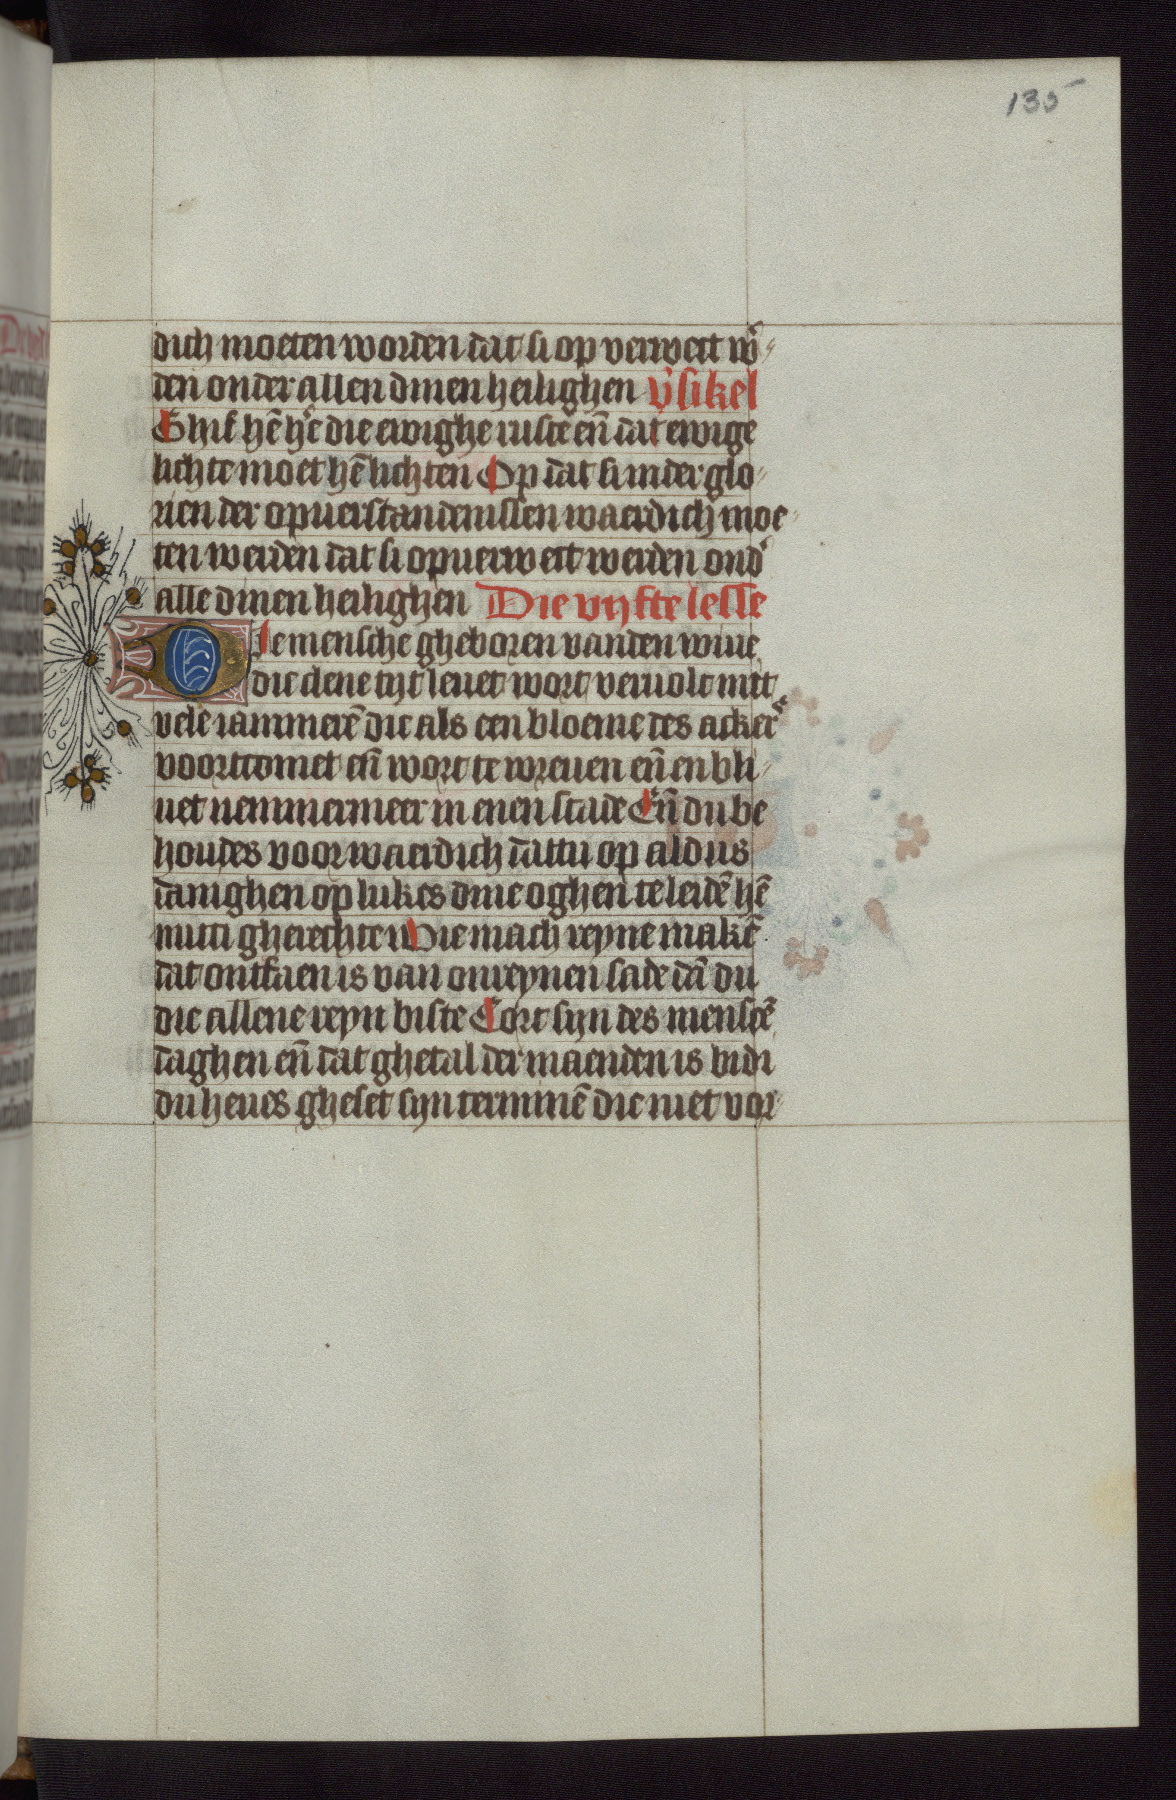 135
dich moeten worden dat si op verwect w̉
den onder allen dinen heilighen v̉sikel
Ghif hē hēe die ewighe ruste eñ dat ewige
lichte moet hē lichten Op dat si in der glo
rien der opuerstandenissen waerdich moe
ten werden dat si opuerwect werden ond̉
alle dinen heilighen Die vijfte lesse
Die mensche gheboren vanden wiue
die clene tijt leuet wort veruolt mit
vele iammerē die als een bloeme des ackers
voortcomet eñ wort te wreuen eñ en bli
uet nemmermeer in enen stade Eñ du be
houdes voor waerdich dattu op aldus
danighen op lukes dine oghen te leidē hē
mitti gherechte Wie mach reyne makē
dat ontfaen is van onreynen sade dā du
die allene reyn biste Cort sijn des menscē
daghen eñ dat ghetal der maenden is bi di
du heues gheset sijn terminē die niet vor